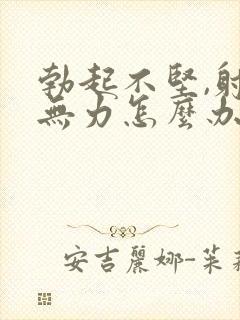 勃起不堅,射
無力怎麼办
安吉麗娜-茱